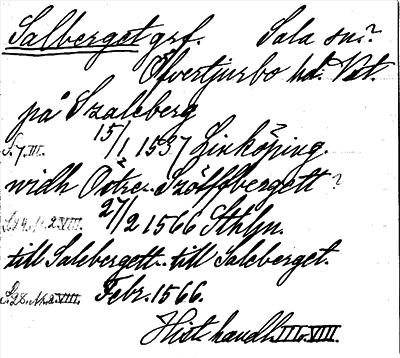 Salberget grf. Sala sn.?
Öfvertjurbo hd. Vst.
på Szaleberg
15/1 1537 Linköping.
S. 7. III.
widh Östre Szölffbergett?
27/2 1566 Sthlm.
till Salebergett till Saleberget.
S. 28. VIII. Febr. 1566.
Hist. handl. III o. VIII.